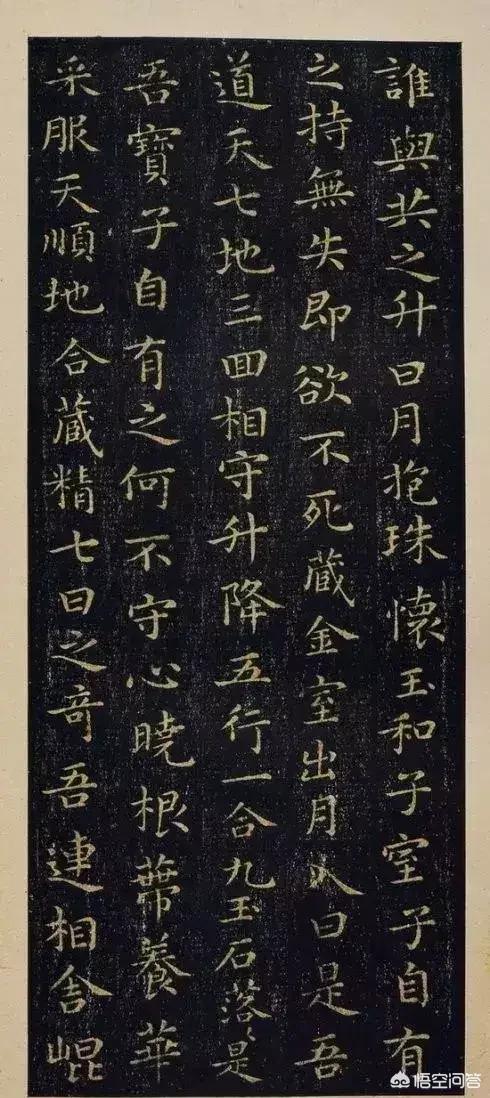 誰與共之升日月抱珠懷玉和子室子自有
之持無失即欲不死藏金室出月入日是吾
道天七地三回相守升降五行一合九玉石落〻是
吾寶子自有之何不守心曉根蔕養華
采服天順地合藏精七日之奇吾連相舍崐
悟空问答